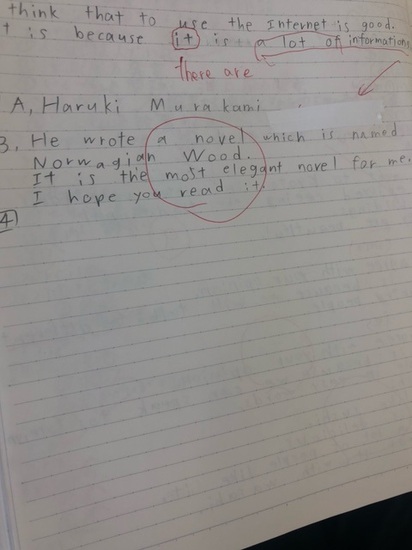 think that to use the Internet is good.
t is because it is a lot of informations
there are
A, Haruki Murakami
3. He wrote a novel which is named
Norwagian Wood.
It is the most elegant novel for me.
I hope you read it.
4